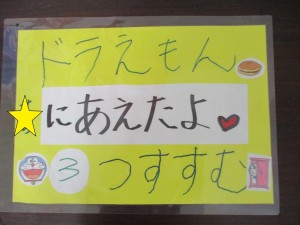 ドラえもん
にあえたよ
3つすすむ